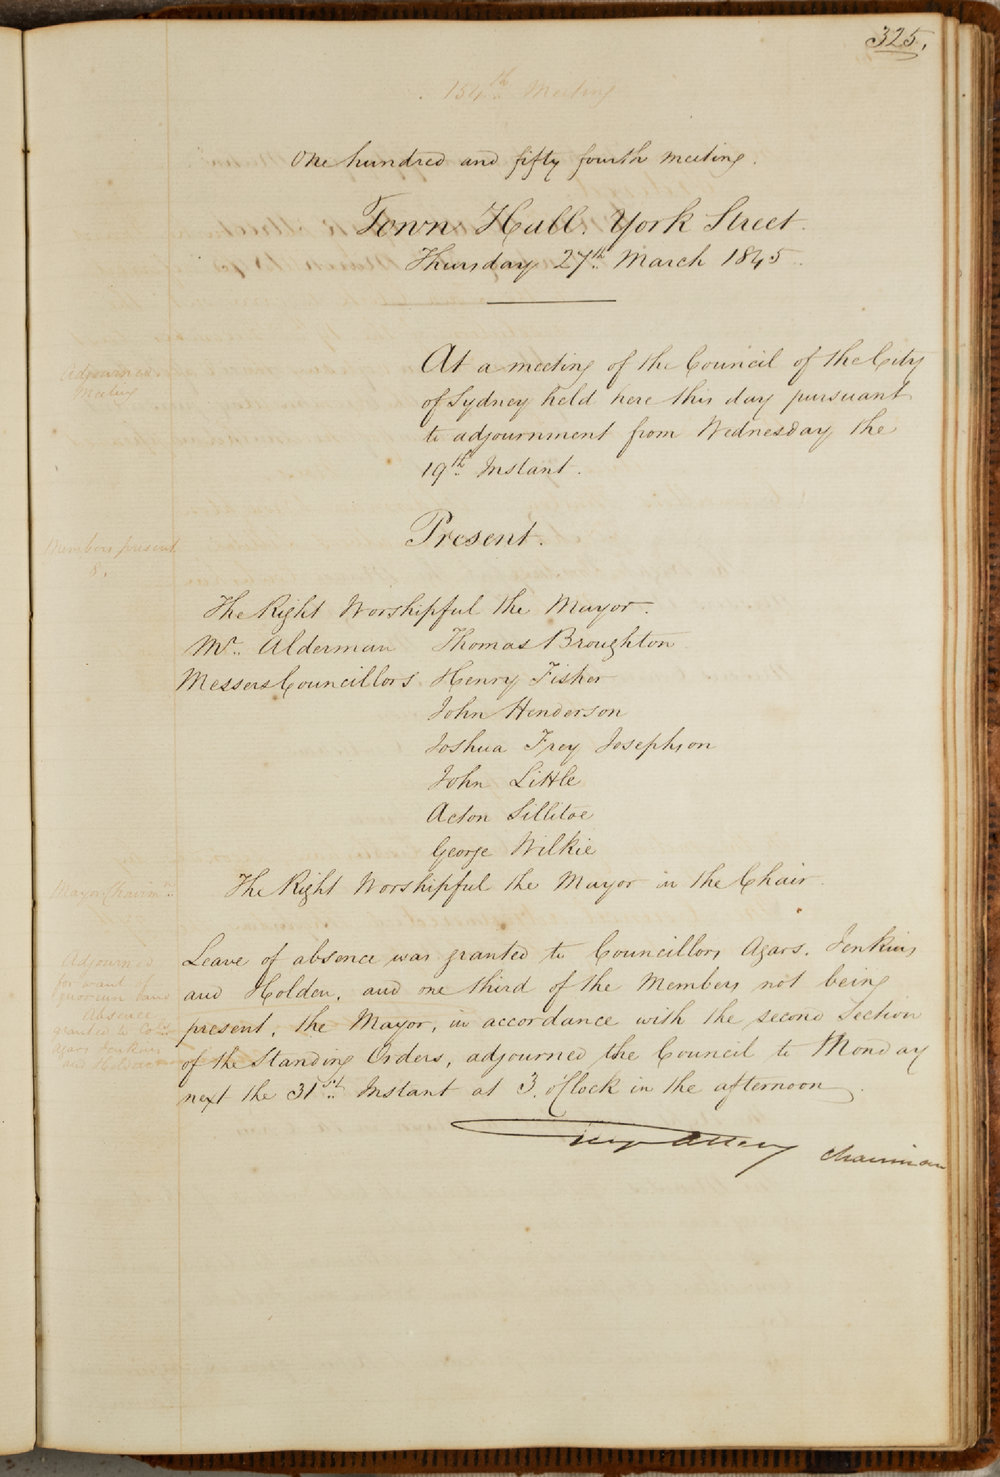 325.
154th Meeting
One hundred and fifty fourth meeting.
Town Hall. York Street.
Thursday 27th March 1845.
Adjourned
Meeting
At a meeting of the Council of the City
of Sydney held here this day pursuant
to adjournment from Wednesday the
19th Instant.
Present.
Members present
8.
The Right Worshipful the Mayor.
Mr. Alderman Thomas Broughton
Messers Councillors Henry Fisher
John Henderson
Joshua Frey Josephson
John Little
Acton Sillitoe
George Wilkie
Mayor Chairmn.
The Right Worshipful the Mayor in the Chair.
Adjourned
for want of
quorum
Absence
granted to
Agars Jenkins
and Holden
Leave of absence was granted to Councillors Agars, Jenkins
and Holden, and one third of the Members not being
present, the Mayor, in accordance with the second Section
of the Standing Orders, adjourned the Council to Monday
next the 31st Instant at 3. o'Clock in the afternoon.
Chairman